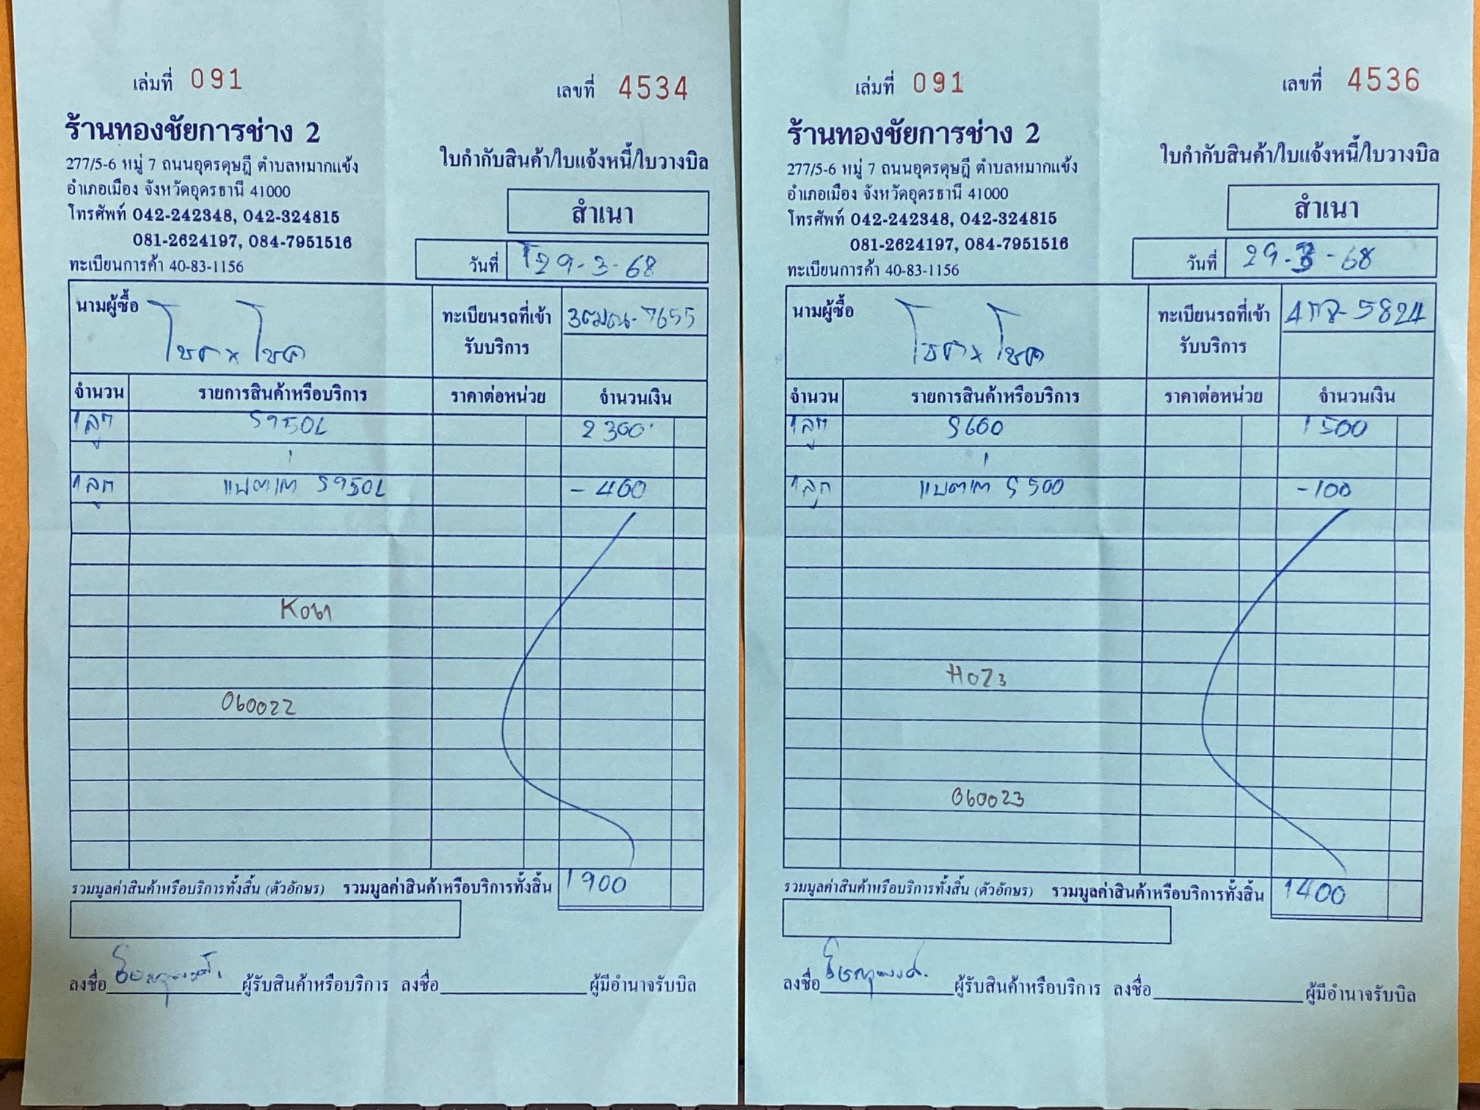 เล่มที่ 091
เลขที่ 4534
ร้านทองชัยการช่าง 2
277/5-6 หมู่ 7 ถนนอุดรดุษฎี ตำบลหมากแข้ง
อำเภอเมือง จังหวัดอุดรธานี 41000
โทรศัพท์ 042-242348, 042-324815
081-2624197, 084-7951516
ทะเบียนการค้า 40-83-1156
ใบกำกับสินค้า/ใบแจ้งหนี้/ใบวางบิล
สำเนา
วันที่ 29-3-68
นามผู้ซื้อ โชค x โชค
ทะเบียนรถที่เข้ารับบริการ 3ฒณ-7655
จำนวน รายการสินค้าหรือบริการ ราคาต่อหน่วย จำนวนเงิน
1 ลูก S950L 2300
1 ลูก แบตเก่า S950L -400
060022
รวมมูลค่าสินค้าหรือบริการทั้งสิ้น (ตัวอักษร) รวมมูลค่าสินค้าหรือบริการทั้งสิ้น 1900
ลงชื่อ ผู้รับสินค้าหรือบริการ ลงชื่อ ผู้มีอำนาจรับบิล
เล่มที่ 091
เลขที่ 4536
ร้านทองชัยการช่าง 2
277/5-6 หมู่ 7 ถนนอุดรดุษฎี ตำบลหมากแข้ง
อำเภอเมือง จังหวัดอุดรธานี 41000
โทรศัพท์ 042-242348, 042-324815
081-2624197, 084-7951516
ทะเบียนการค้า 40-83-1156
ใบกำกับสินค้า/ใบแจ้งหนี้/ใบวางบิล
สำเนา
วันที่ 29-3-68
นามผู้ซื้อ โชค x โชค
ทะเบียนรถที่เข้ารับบริการ 5824
จำนวน รายการสินค้าหรือบริการ ราคาต่อหน่วย จำนวนเงิน
1 ลูก S600 1500
1 ลูก แบตเก่า S500 -100
H023
060023
รวมมูลค่าสินค้าหรือบริการทั้งสิ้น (ตัวอักษร) รวมมูลค่าสินค้าหรือบริการทั้งสิ้น 1400
ลงชื่อ ผู้รับสินค้าหรือบริการ ลงชื่อ ผู้มีอำนาจรับบิล